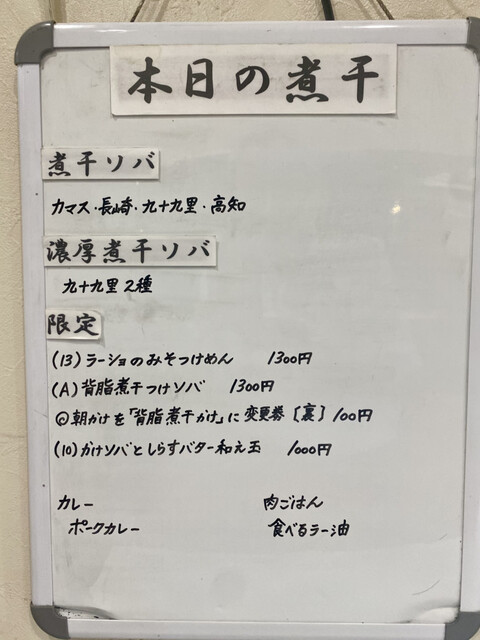 本日の煮干
煮干ソバ
カマス・長崎・九十九里・高知
濃厚煮干ソバ
九十九里2種
限定
(13)ラーショのみそつけめん 1300円
(A)背脂煮干つけソバ 1300円
◎朝かけを「背脂煮干かけ」に変更券〔裏〕100円
(10)かけソバとしらすバター和え玉 1000円
カレー 肉ごはん
ポークカレー 食べるラー油